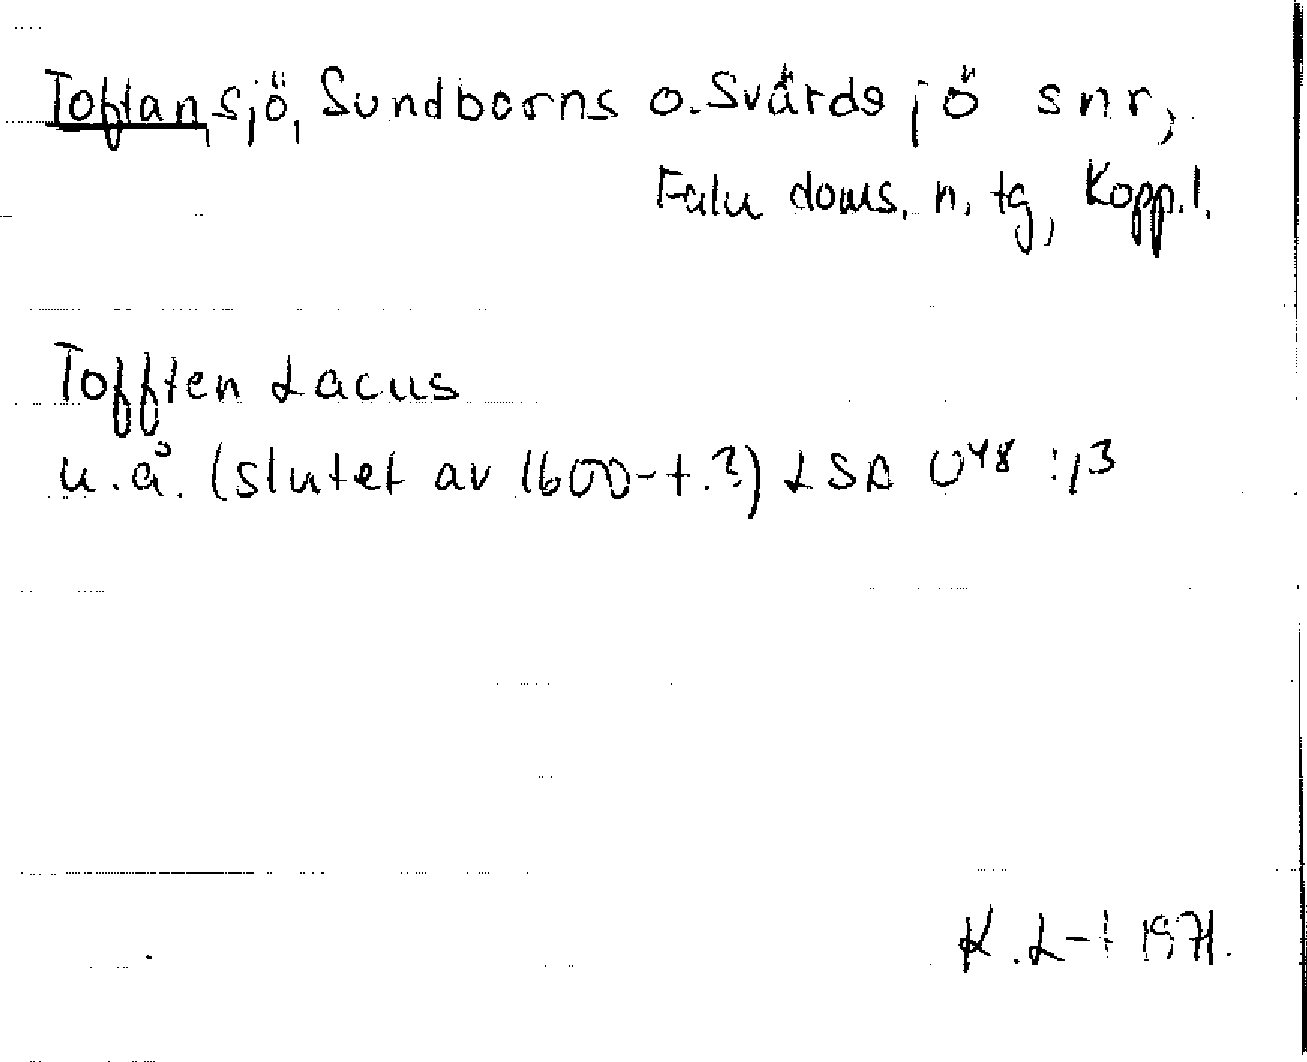 Toftan, sjö, Sundborns o. Svärdsjö snr,
Falu doms. n. tg, Kopp.l.
Tofften Lacus
u.å. (slutet av 1600-t.?) LSA U48:13
K.L-t 1971.